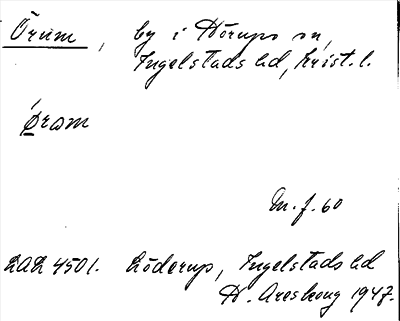 Örum, by i Hörups sn,
Ingelstads hd, Krist. l.
Øram
M. f. 60
LAL 4501. Löderup, Ingelstads hd
H. Areskoug 1947.